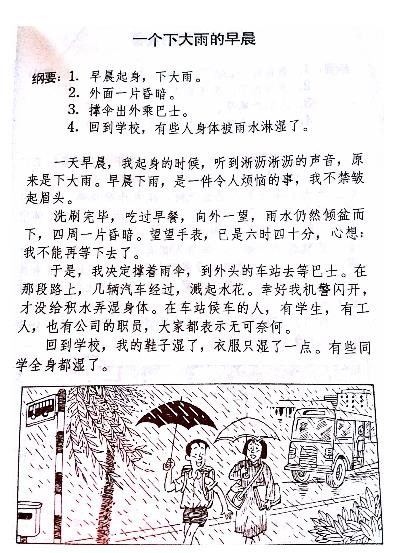 一个下大雨的早晨
纲要：1. 早晨起身，下大雨。
2. 外面一片昏暗。
3. 撑伞出外乘巴士。
4. 回到学校，有些人身体被雨水淋湿了。
一天早晨，我起身的时候，听到淅沥淅沥的声音，原
来是下大雨。早晨下雨，是一件令人烦恼的事，我不禁皱
起眉头。
洗刷完毕，吃过早餐，向外一望，雨水仍然倾盆而
下，四周一片昏暗。望望手表，已是六时四十分，心想：
我不能再等下去了。
于是，我决定撑着雨伞，到外头的车站去等巴士。在
那段路上，几辆汽车经过，溅起水花。幸好我机警闪开，
才没给积水弄湿身体。在车站候车的人，有学生，有工
人，也有公司的职员，大家都表示无可奈何。
回到学校，我的鞋子湿了，衣服只湿了一点。有些同
学全身都湿了。